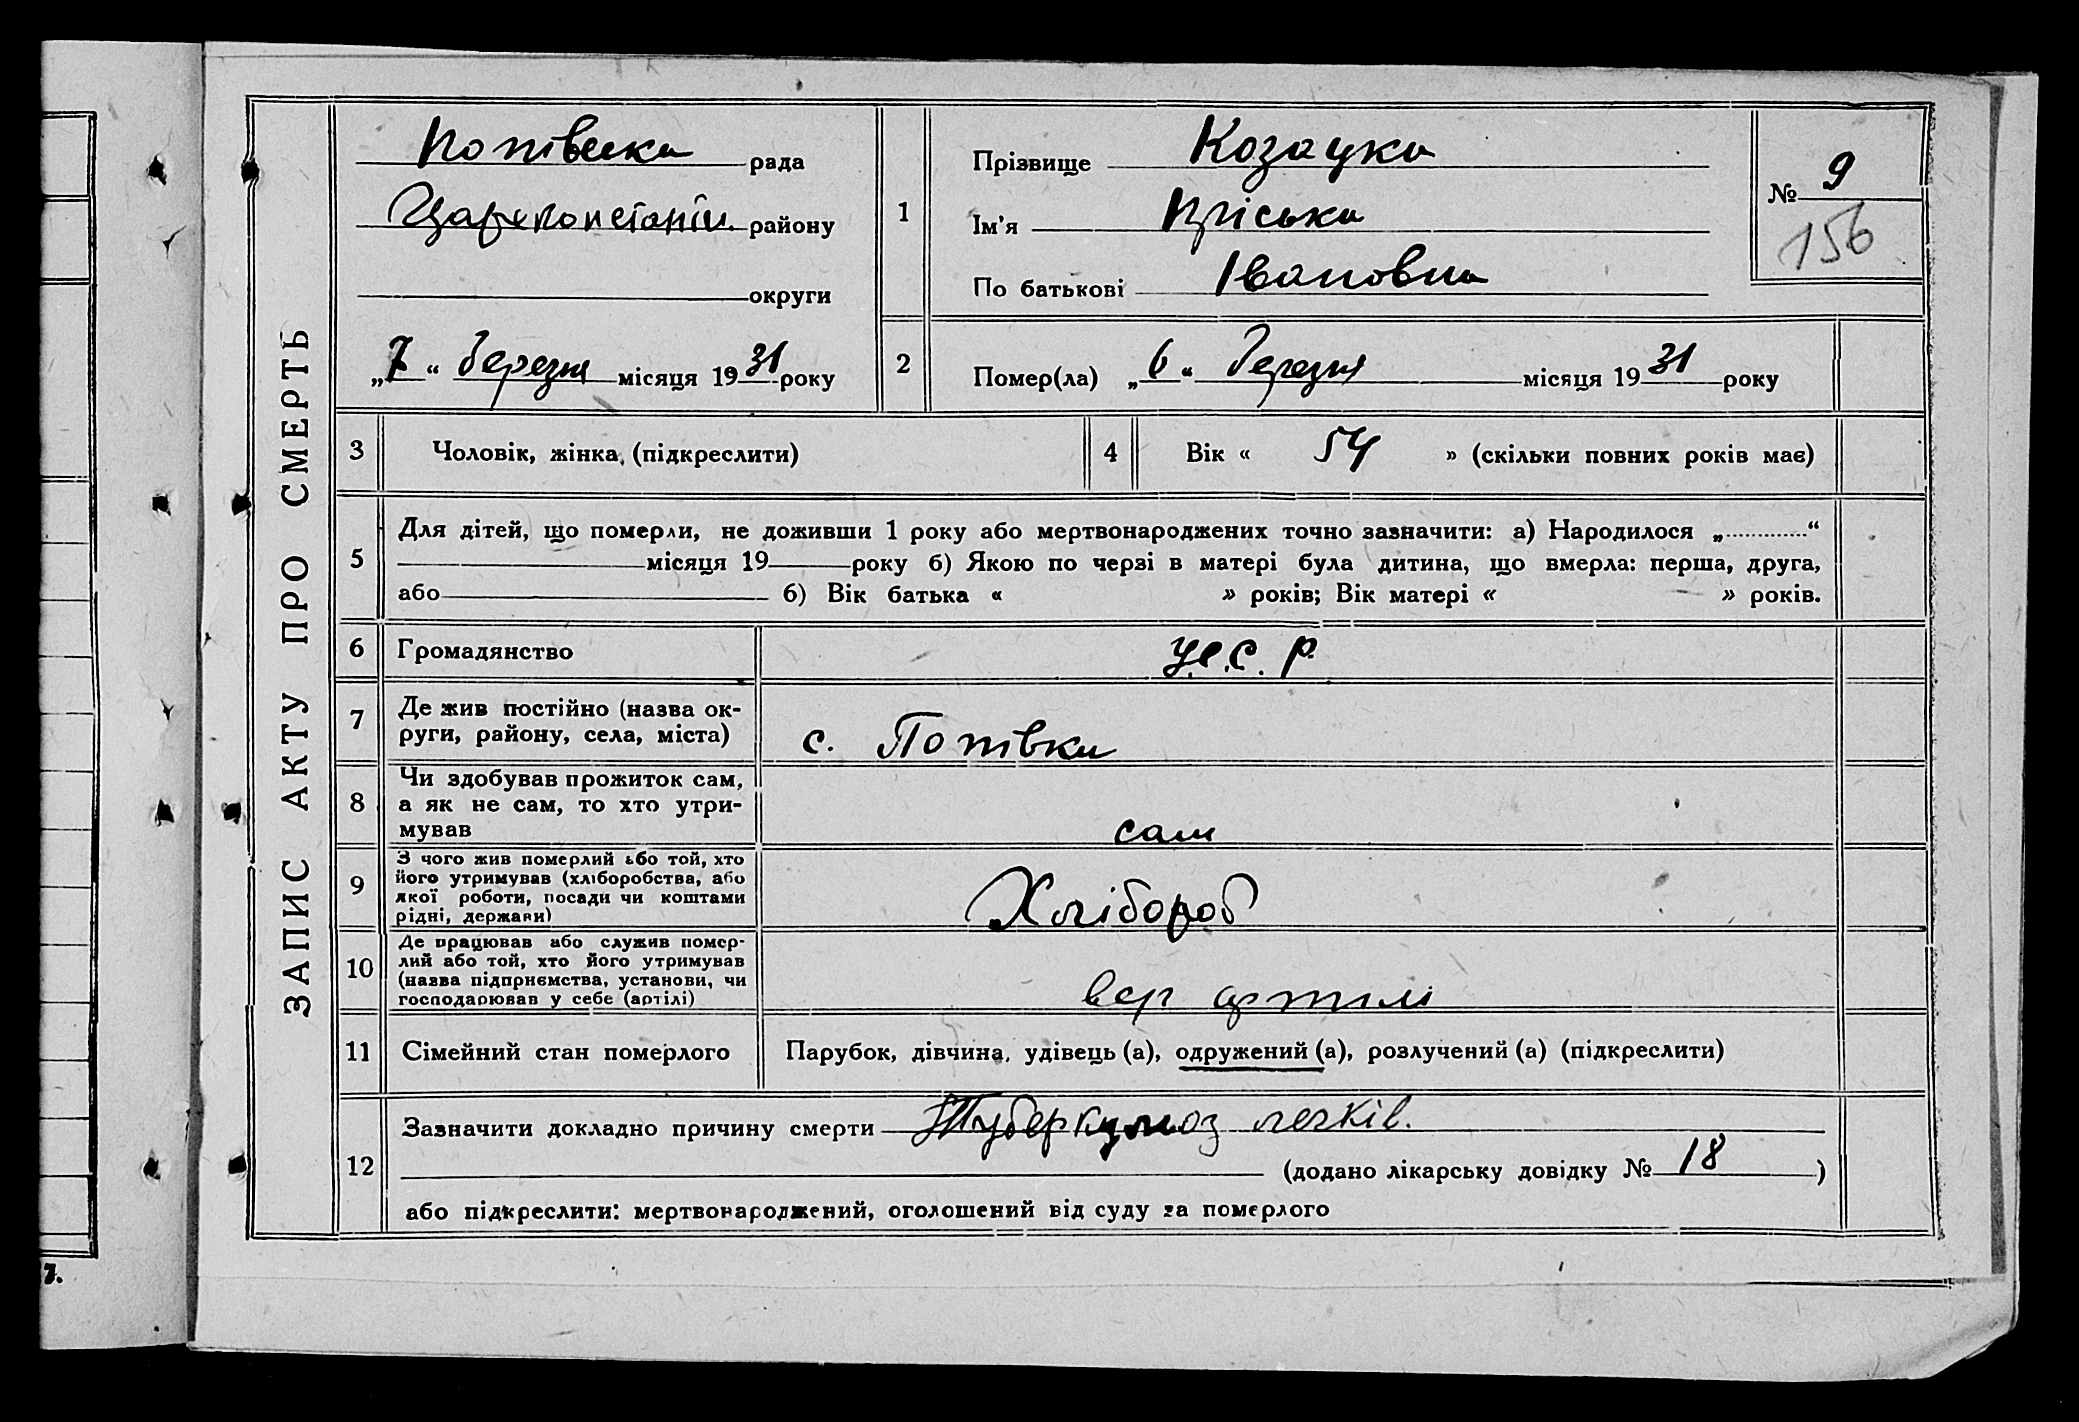 ЗАПИС АКТУ ПРО СМЕРТЬ
Попівська рада
Царекопстантін. району
округи
„7“ березня місяця 1931 року
1
Прізвище Козацка
Ім'я Пріська
По батькові Івановна
№ 9
156
2
Помер(ла) „6“ березня місяця 1931 року
3
Чоловік, жінка, (підкреслити)
4
Вік « 54 » (скільки повних років має)
5
Для дітей, що померли, не доживши 1 року або мертвонароджених точно зазначити: а) Народилося „............“
місяця 19 року б) Якою по черзі в матері була дитина, що вмерла: перша, друга,
або б) Вік батька « » років; Вік матері « » років.
6
Громадянство
У.С.С.Р.
7
Де жив постійно (назва ок-
руги, району, села, міста)
с. Попівка
8
Чи здобував прожиток сам,
а як не сам, то хто утри-
мував
сам
9
З чого жив померлий або той, хто
його утримував (хліборобства, або
якої роботи, посади чи коштами
рідні, держави)
Хлібороб
10
Де працював або служив помер-
лий або той, хто його утримував
(назва підприємства, установи, чи
господарював у себе (артілі)
артілі
11
Сімейний стан померлого
Парубок, дівчина, удівець (а), одружений (а), розлучений (а) (підкреслити)
12
Зазначити докладно причину смерти Туберкульоз легків.
(додано лікарську довідку № 18)
або підкреслити: мертвонароджений, оголошений від суду за померлого
7.